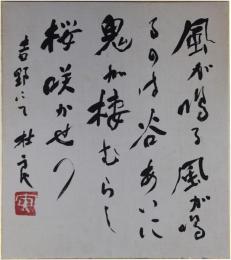 風が鳴る風が鳴
るのは谷あいに
鬼が棲むらし
桜咲かせつ
吉野にて 杜夫